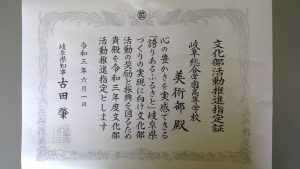 文化部活動推進指定証
岐阜総合学園高等学校
美術部 殿
心の豊かさを実感できる
「誇りあふるさと」岐阜県
づくりの実現に向け文化部
活動の奨励と振興を図るため
貴殿を令和三年度文化部
活動推進指定とします
令和三年六月一日
岐阜県知事 古田 肇